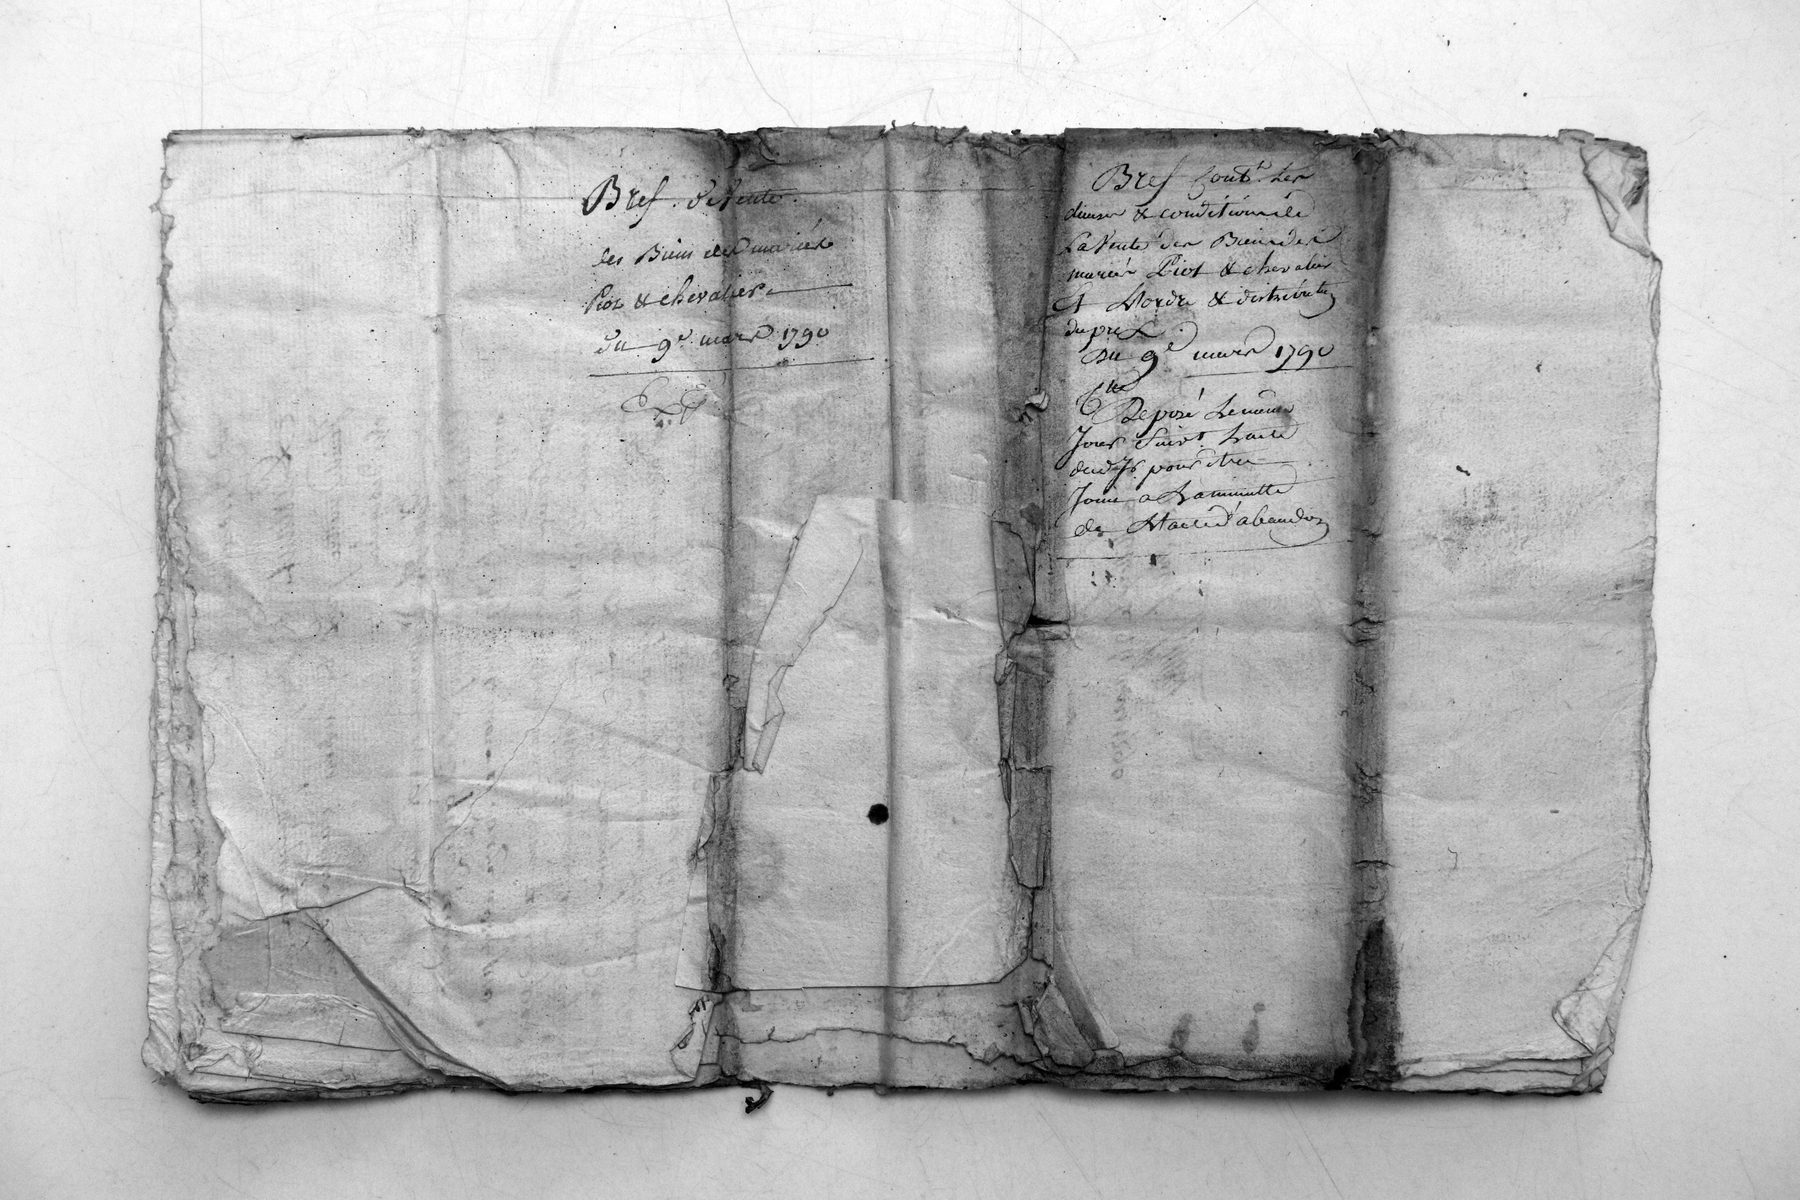 Bref de Vente
des Biens des mariés
Piot & chevalier
du 9e mars 1790
Bref Cont.t Les
& conditions de
La Vente des Biens des
mariés Piot & chevalier
Et L'ordre & distribution
du prix
Du 9e mars 1790
Deposé Le même
Jour Suiv.t L'acte
pour être
Joint a La minutte
de L'acte d'abandon